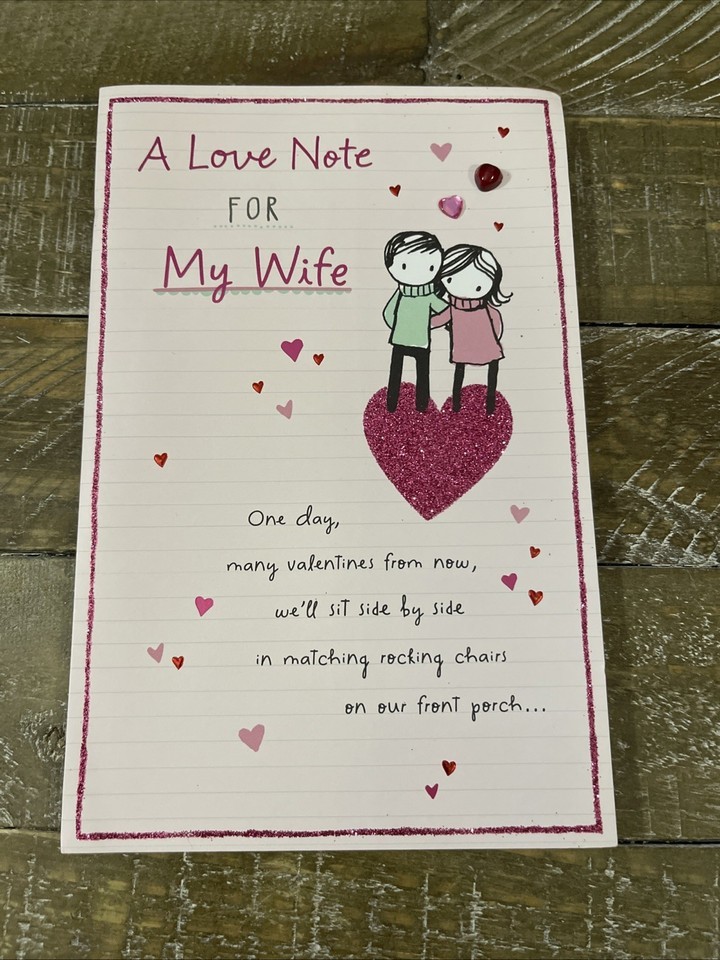 A Love Note
FOR
My Wife
One day,
many valentines from now,
we'll sit side by side
in matching rocking chairs
on our front porch...